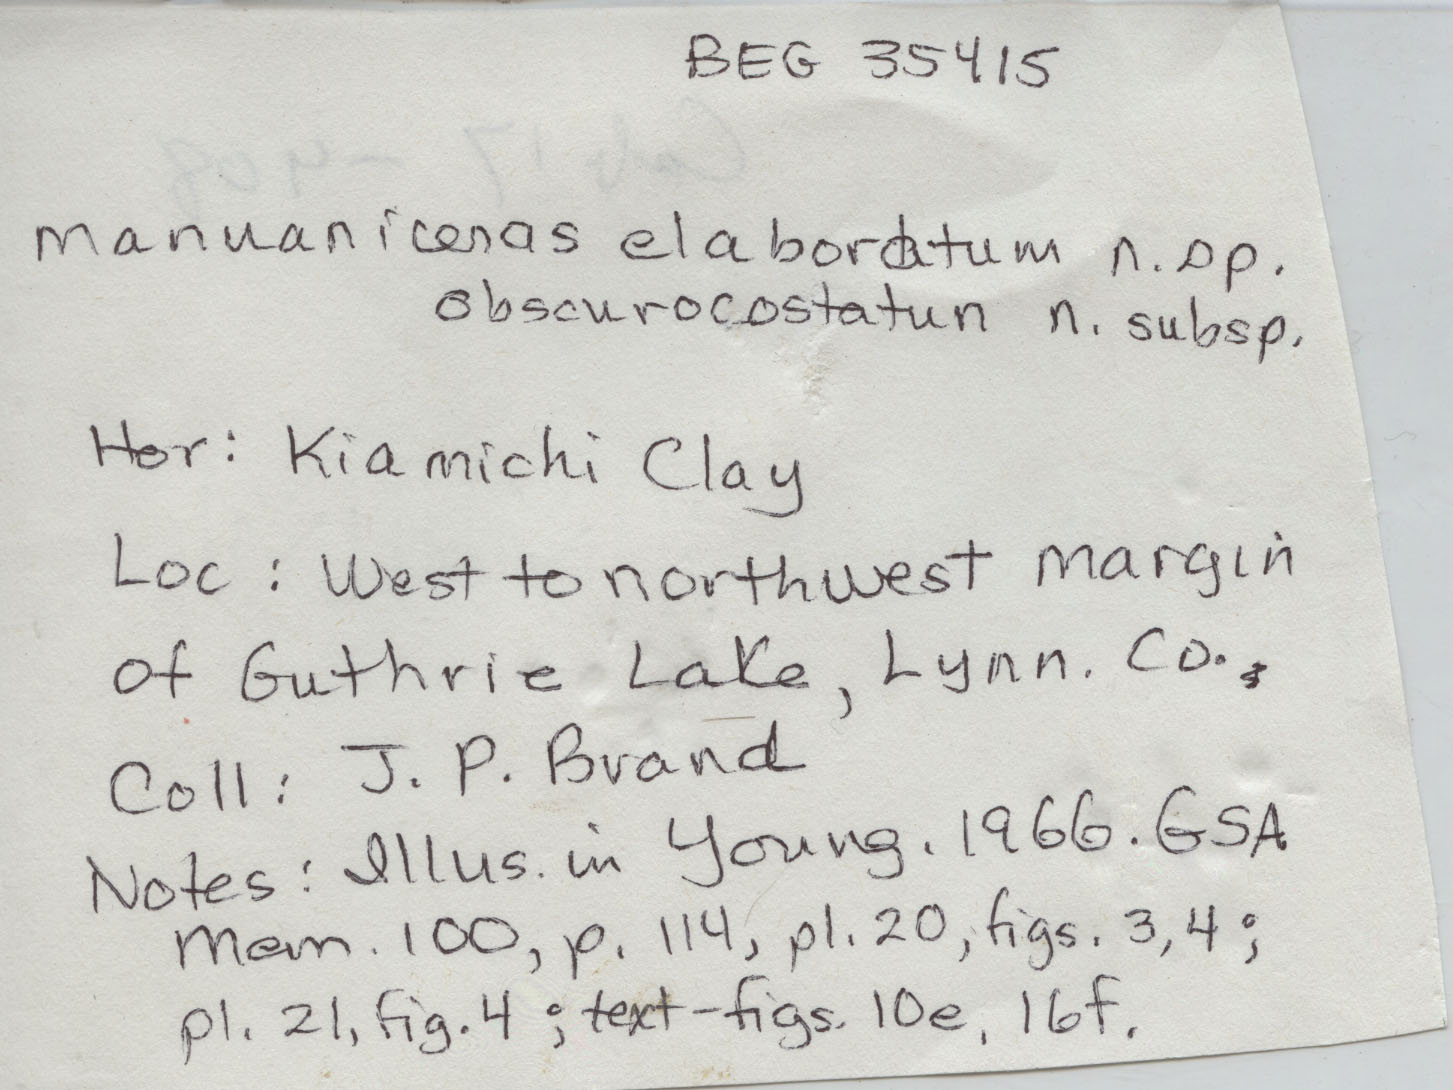 BEG 35415
manuaniceras elaboratum n. sp.
obscurocostatun n. subsp.
Hor: Kiamichi Clay
Loc: West to northwest margin
of Guthrie Lake, Lynn. Co.,
Coll: J. P. Brand
Notes: Illus. in Young. 1966. GSA
Mem. 100, p. 114, pl. 20, figs. 3, 4;
pl. 21, fig. 4; text-figs. 10e, 16f.